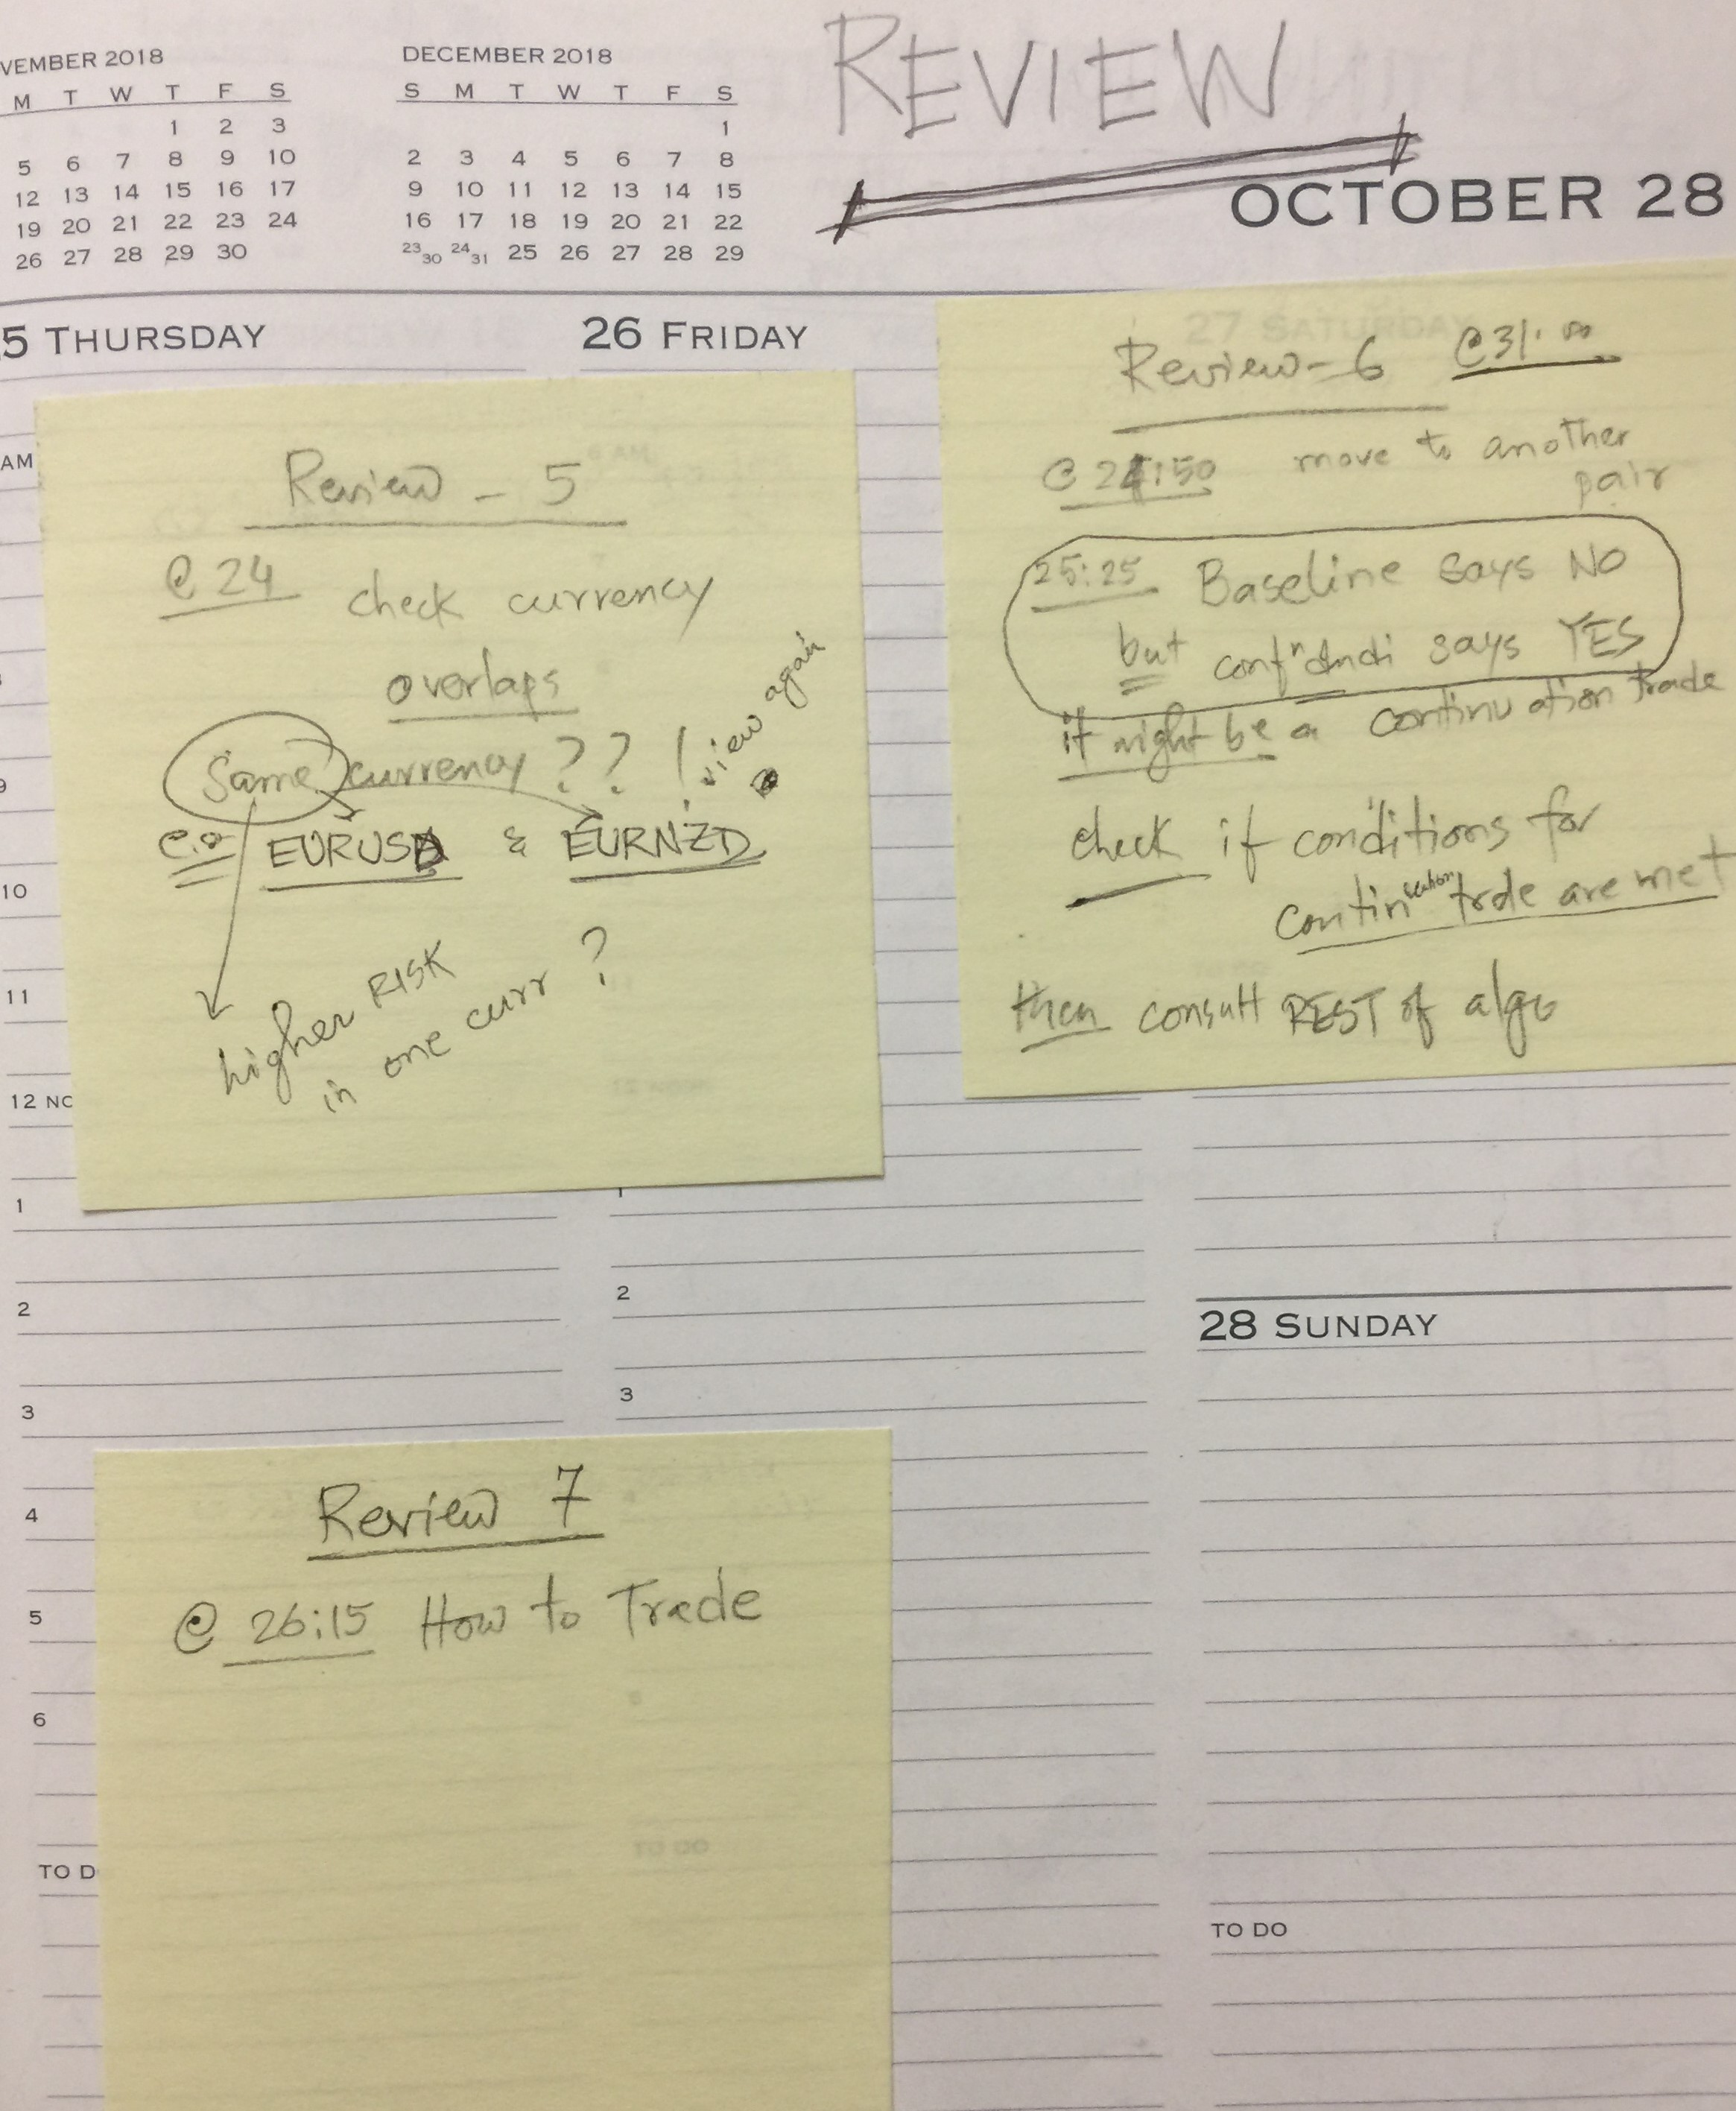 VEMBER 2018
M T W T F S
1 2 3
5 6 7 8 9 10
12 13 14 15 16 17
19 20 21 22 23 24
26 27 28 29 30
DECEMBER 2018
S M T W T F S
1
2 3 4 5 6 7 8
9 10 11 12 13 14 15
16 17 18 19 20 21 22
23 30 24 31 25 26 27 28 29
REVIEW
OCTOBER 28
5 THURSDAY
26 FRIDAY
27 SATURDAY
AM
9
10
11
12 NO
1
2
3
4
5
6
TO D
Review - 5
@ 24 check currency
overlaps
Same currency ?? !
view again
e.g EURUSD & EURNZD
higher RISK
in one curr ?
1
2
3
Review 7
@ 26:15 How to Trade
TO DO
Review - 6 @31:00
@ 24:50 move to another
pair
25:25 Baseline says NO
but confn Indi says YES
it might be a continuation trade
check if conditions for
continuation trde are met
then consult REST of algo
28 SUNDAY
TO DO